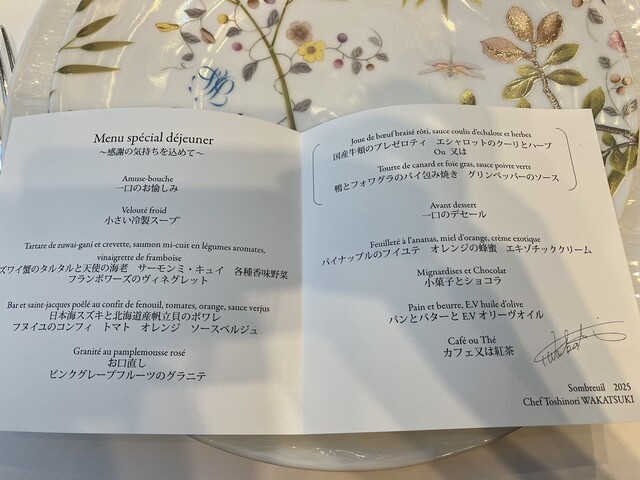 Menu spécial déjeuner
～感謝の気持ちを込めて～
Amuse-bouche
一口のお愉しみ
Velouté froid
小さい冷製スープ
Tartare de zuwai-gani et crevette, saumon mi-cuit en légumes aromates,
vinaigrette de framboise
ズワイ蟹のタルタルと天使の海老　サーモンミ・キュイ　各種香味野菜
フランボワーズのヴィネグレット
Bar et saint-jacques poêlé au confit de fenouil, tomates, orange, sauce verjus
日本海スズキと北海道産帆立貝のポワレ
フヌイユのコンフィ　トマト　オレンジ　ソースベルジュ
Granité au pamplemousse rosé
お口直し
ピンクグレープフルーツのグラニテ
Joue de bœuf braisé rôti, sauce coulis d'echalote et herbes
国産牛頬のブレゼロティ　エシャロットのクーリとハーブ
Ou　又は
Tourte de canard et foie gras, sauce poivre verts
鴨とフォワグラのパイ包み焼き　グリンペッパーのソース
Avant dessert
一口のデセール
Feuilleté à l'ananas, miel d'orange, crème exotique
パイナップルのフイユテ　オレンジの蜂蜜　エキゾチッククリーム
Mignardises et Chocolat
小菓子とショコラ
Pain et beurre, E.V huile d'olive
パンとバターと E.V オリーヴオイル
Café ou Thé
カフェ又は紅茶
Sombreuil　2025
Chef Toshinori WAKATSUKI